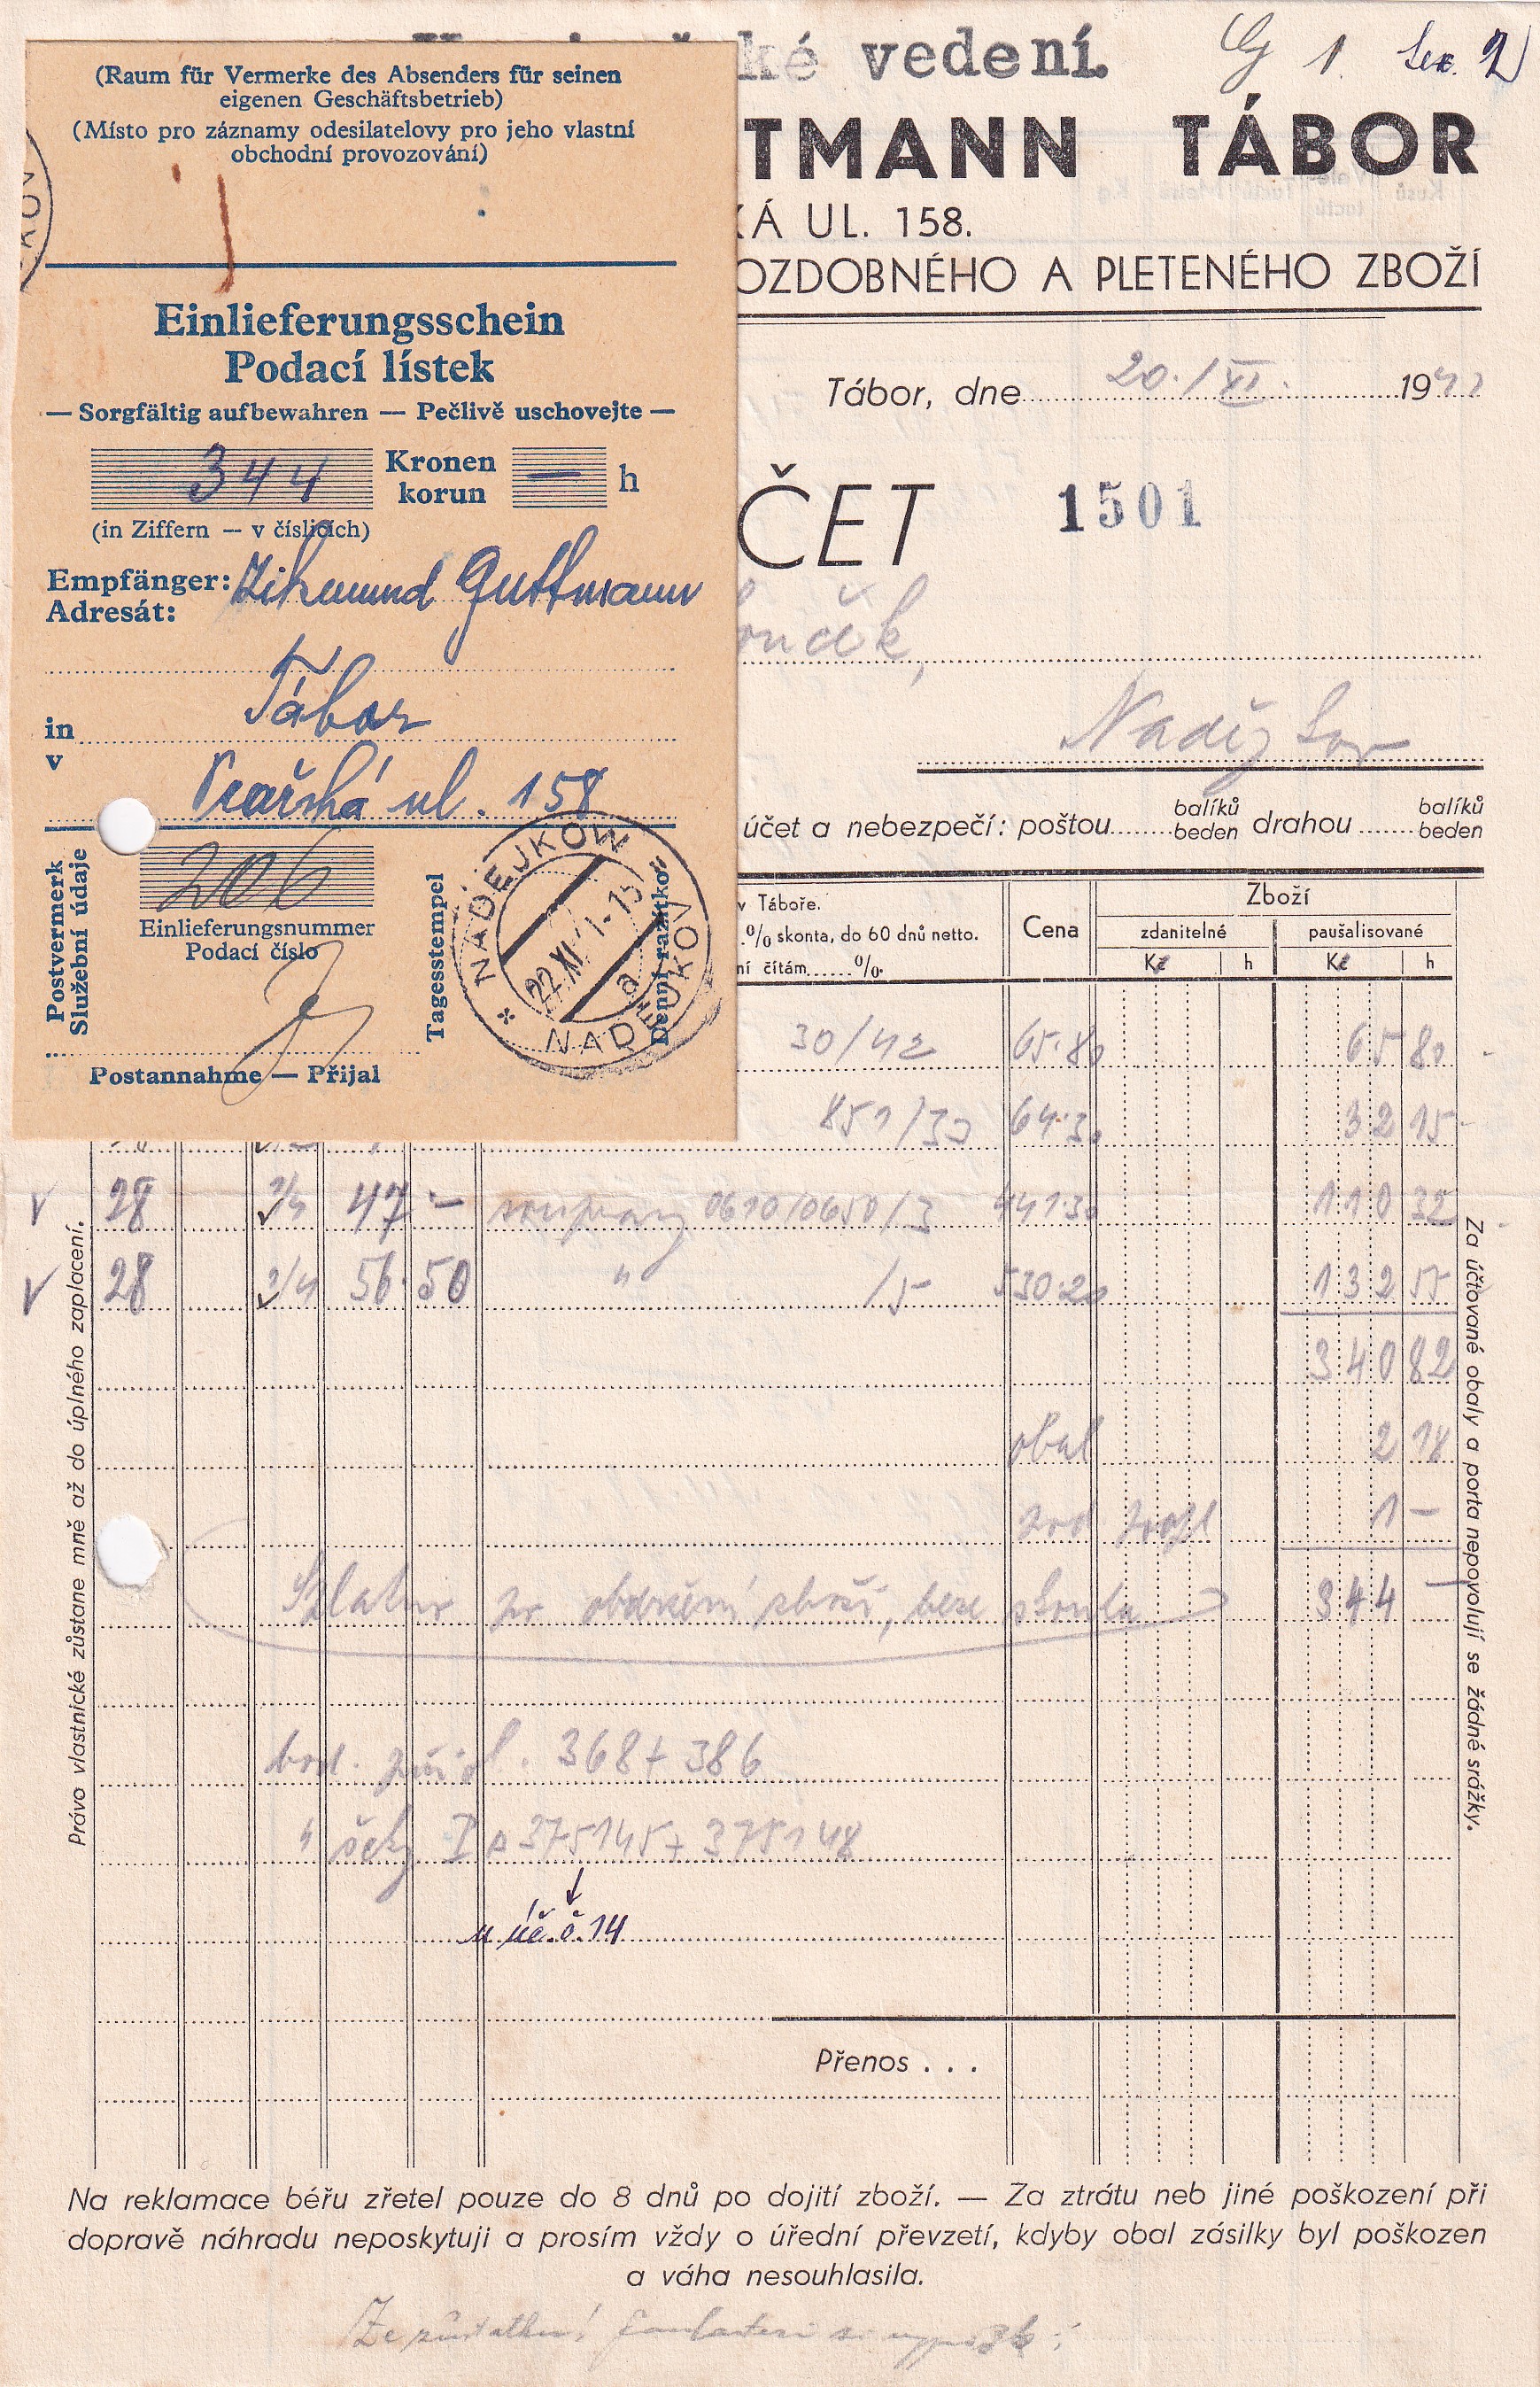 ké vedení.
1.
2
(Raum für Vermerke des Absenders für seinen
eigenen Geschäftsbetrieb)
(Místo pro záznamy odesilatelovy pro jeho vlastní
obchodní provozování)
TMANN TÁBOR
KÁ UL. 158.
OZDOBNÉHO A PLETENÉHO ZBOŽÍ
Einlieferungsschein
Podací lístek
— Sorgfältig aufbewahren — Pečlivě uschovejte —
344 Kronen — h
korun
(in Ziffern — v číslicích)
Empfänger: Zikmund Guttmann
Adresát:
in Tábor
v
ul. 158
Postvermerk
Služební údaje
206
Einlieferungsnummer
Podací číslo
Tagesstempel
Denní razítko
NADEJKOW
NADĚJKOV
22.XI.41-15
a
Postannahme — Přijal
Tábor, dne 20./XI. 1941
ČET 1501
účet a nebezpečí: poštou balíků beden drahou balíků beden
v Táboře.
% skonta, do 60 dnů netto.
ní čítám % Cena
Zboží
zdanitelné paušalisované
K h K h
30/42 65·80 65 80
851/30 64·30 32 15
28 1/4 47 — soupravy 0610/0650/3 441·30 110 32
28 1/4 56·50 " /5 530·20 132 55
340 82
obal 2 18
1 —
po obdržení zboží, beze 344 —
368 + 386
" šeky 375145 + 375148
14
Přenos . . .
Právo vlastnické zůstane mně až do úplného zaplacení.
Za účtované obaly a porta nepovolují se žádné srážky.
Na reklamace béřu zřetel pouze do 8 dnů po dojití zboží. — Za ztrátu neb jiné poškození při
dopravě náhradu neposkytuji a prosím vždy o úřední převzetí, kdyby obal zásilky byl poškozen
a váha nesouhlasila.